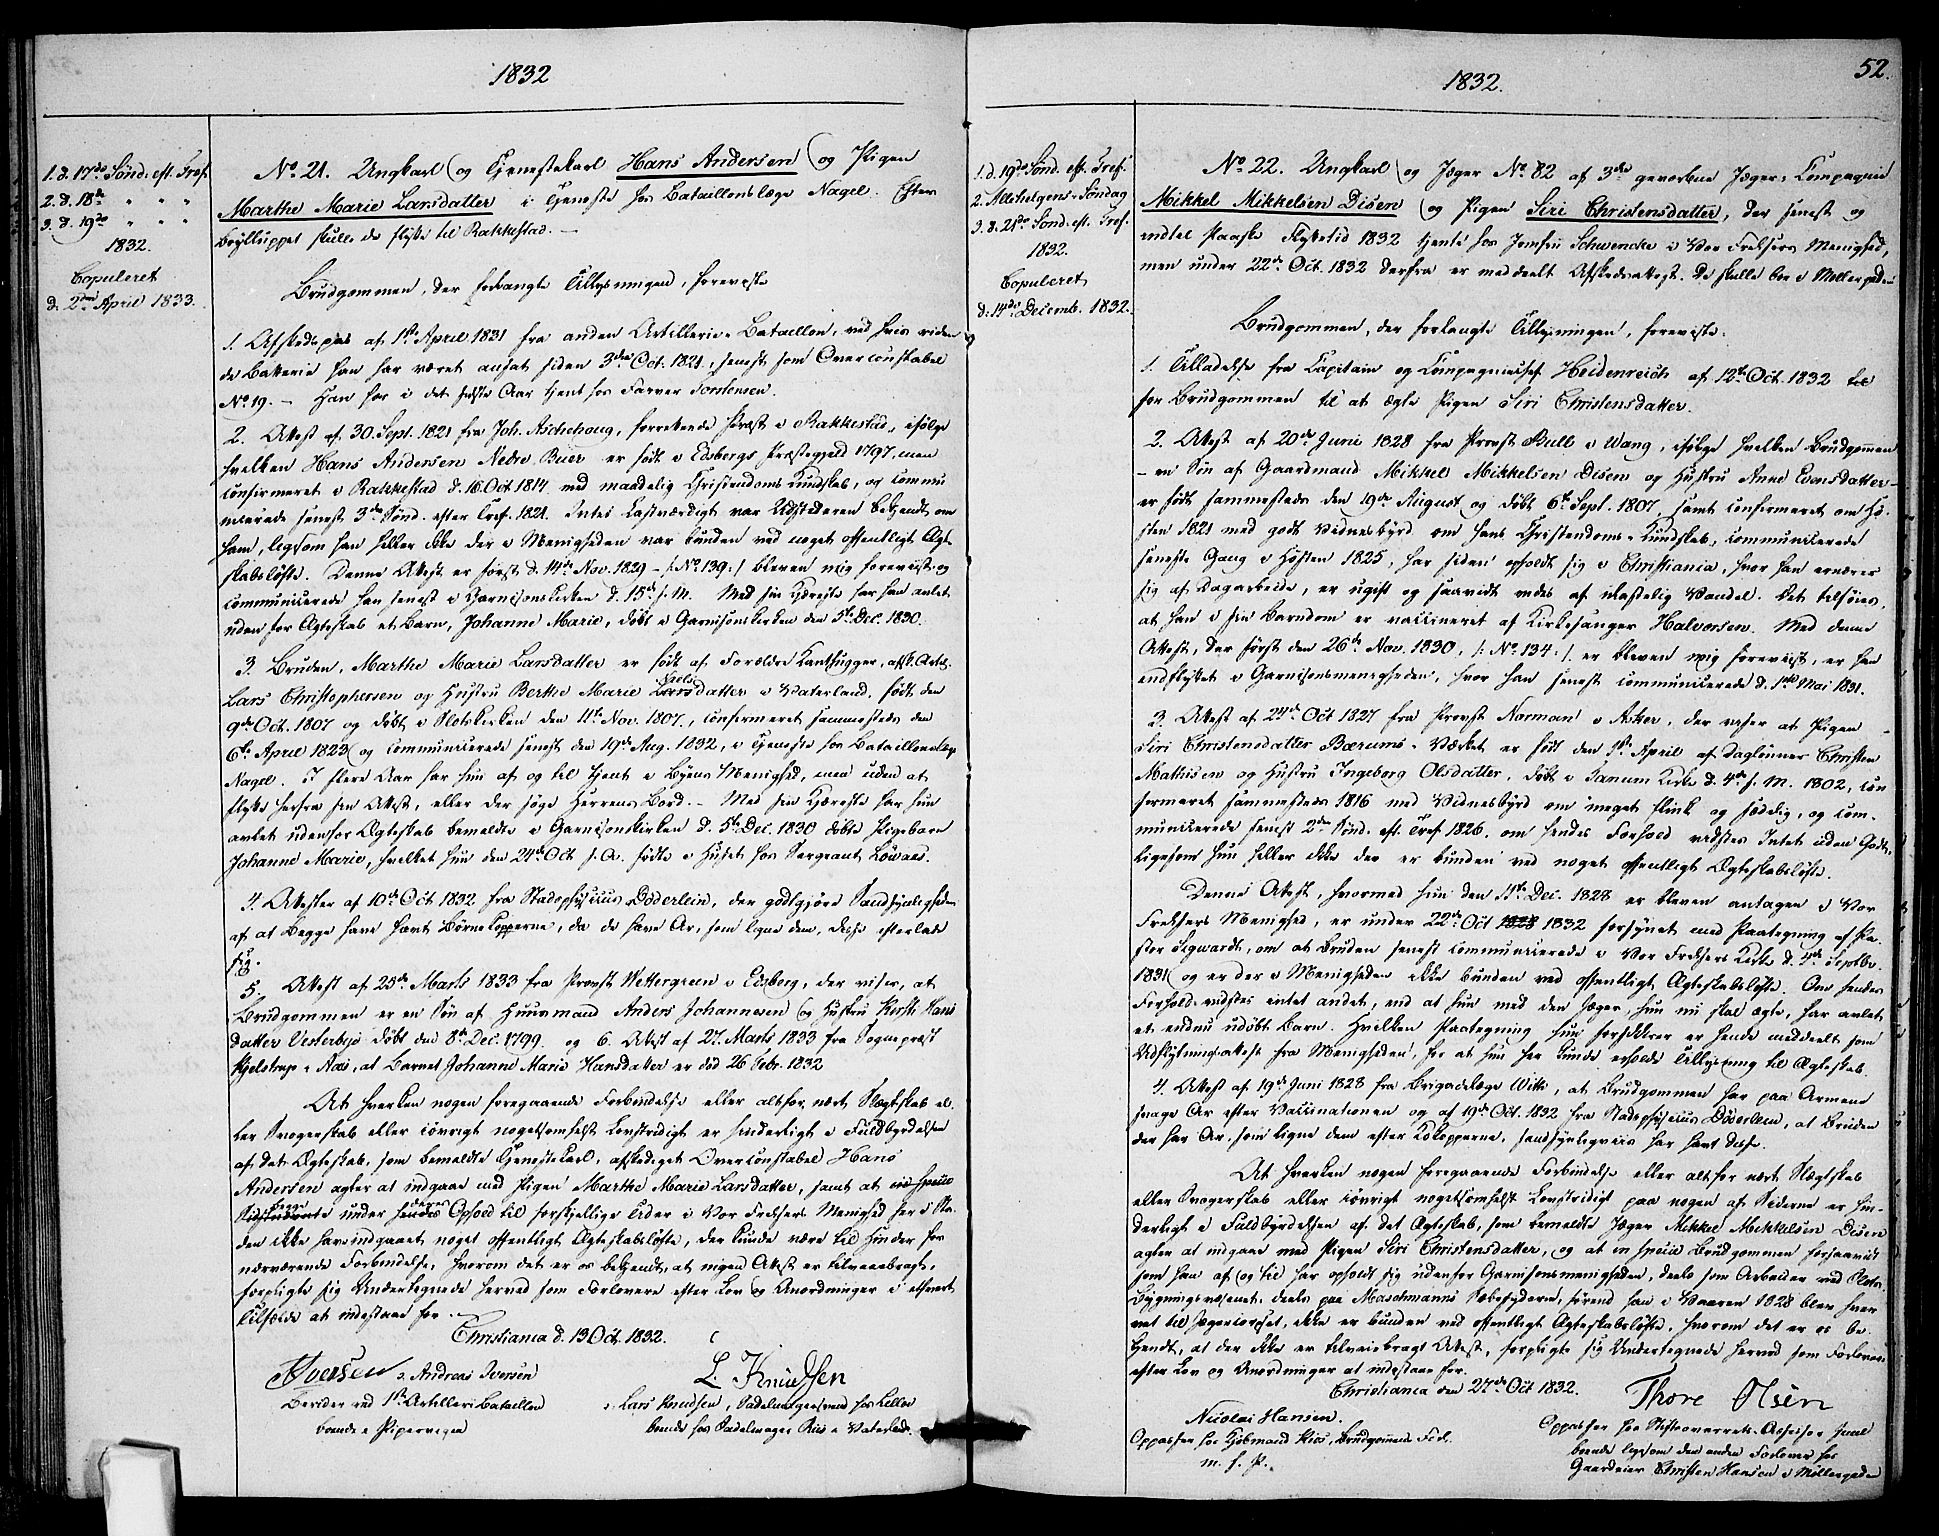 1832
1. d. 17de Sønd. eft. Tref.
2. d. 18de " " "
3. d. 19de " " "
1832.
Copuleret
d. 2den April 1833.
No. 21. Ungkarl og Tjenestekarl Hans Andersen og Pigen
Marthe Marie Larsdatter i Tjeneste hos Bataillonslæge Nagel. Efter
Brylluppet skulle de flytte til Rakkestad.
Brudgommen, der forlangte Tillysningen, foreviste
1. Afskedspas af 1ste April 1831 fra anden Artillerie-Bataillon, ved hvis riden
de Batterie han har været ansat siden 3die Oct. 1821, senest som Overconstabel
No. 19. – Han har i det sidste Aar tjent hos Farver Torstensen.
2. Attest af 30. Sept. 1821 fra Joh. Aschehoug, Præst i Rakkestad, ifølge
hvilken Hans Andersen Nedre Buer er født i Edsbergs Præstegjeld 1797, men
confirmeret i Rakkestad d. 16 Oct 1814 med maadelig Christendoms Kundskab, og commu
nicerede senest 3die Sønd. efter Tref. 1821. Intet Lastværdigt var Udstederen bekjendt om
ham, ligesom han heller ikke der i Menigheden var bunden ved noget offentligt Ægte
skabsløfte. Denne Attest er først d. 14de Nov. 1829 /: No. 139 :/ bleven mig foreviist og
communicerede han senest i Garnisonskirken d. 15de s. M. Med sin Kjæreste har han avlet
uden for Ægteskab et Barn, Johanne Marie, døbt i Garnisonskirken den 5te Dec. 1830.
3. Bruden, Marthe Marie Larsdatter er født af Forældre Kanthugger, afsk. Artil.
Lars Christophersen og Hustru Berthe Marie Larsdatter i Vaterland, født den
9de Oct. 1807 og døbt i Slotskirken den 11te Nov. 1807, confirmeret sammesteds den
6te April 1823 og communicerede senest den 19de Aug. 1832, i Tjeneste hos Bataillonslæge
Nagel. I flere Aar har hun af og til tjent i Byens Menighed, men uden at
flytte herfra sin Attest, eller der søge Herrens Bord. – Med sin Kjæreste har hun
avlet udenfor Ægteskab bemeldte i Garnisonskirken d. 5te Dec. 1830 døbte Pigebarn
Johanne Marie, hvilket hun den 24de Oct. s. A. fødte i Huset hos Sergeant Løvaas.
4. Attester af 10de Oct 1832 fra Stadsphysicus Döderlein, der godtgjøre Sandsynligheden
af at Begge have havt Børnekopperne, da de have Ar, som ligne dem, disse efterlade
sig.
5. Attest af 25de Marts 1833 fra Provst Wettergreen i Edsberg, der viser, at
Brudgommen er en Søn af Huusmand Anders Johannesen og Hustru Kersti Hans
datter Vesterbyd døbt den 8de Dec. 1799. og 6. Attest af 27. Marts 1833 fra Sognepræst
Kjelstrup i Aas, at Barnet Johanne Marie Hansdatter er død 26 Febr. 1832
At hverken nogen foregaaende Forbindelse eller altfor nært Slægtskab el
ler Svogerskab eller iøvrigt nogetsomhelst Lovstridigt er hinderligt i Fuldbyrdelsen
af det Ægteskab, som bemeldte Tjenestekarl, afskediget Overconstabel Hans
Andersen agter at indgaae med Pigen Marthe Marie Larsdatter, samt at
under Ophold til forskjellige Tider i Vor Frelsers Menighed her i Sta
den ikke have indgaaet noget offentligt Ægteskabsløfte, der kunde være til Hinder for
nærværende Forbindelse, hvorom det er os bekjendt, at ingen Attest er tilveiebragt,
forpligte sig Undertegnede herved som Forlovere efter Lov og Anordninger i ethvert
Tilfælde at indestaae for.
Christiania d. 13 Oct. 1832.
Iversen
ɔ: Andreas Iversen
Berider ved 1ste Artilleri Bataillon
boende i Pipervigen
L. Knudsen
ɔ: Lars Knudsen, Sadelmagersvend hos
boende hos Sadelmager Riis i Vaterland.
1832.
52.
1. d. 19de Sønd. eft. Tref.
2. Allehelgens-Søndag
3. d. 21de Sønd. eft. Tref.
1832.
Copuleret
d. 14de Decemb. 1832.
No. 22. Ungkarl og Jæger No. 82 af 3die geworbne Jæger-Compagnie
Mikkel Mikkelsen Disen og Pigen Siri Christensdatter, der senest og
indtil Paaske Flyttetid 1832 tjente hos Jomfru Schwencke i Vor Frelsers Menighed,
men under 22de Oct. 1832 derfra er meddeelt Afskedsattest. De skulle boe i Møllergaden
Brudgommen, der forlangte Tillysningen, foreviste:
1. Tilladelse fra Capitain og Compagniechef Heidenreich af 12te Oct. 1832
for Brudgommen til at ægte Pigen Siri Christensdatter.
2. Attest af 20de Juni 1828 fra Provst Bull i Wang, ifølge hvilken Brudgommen
– en Søn af Gaardmand Mikkel Mikkelsen Disen og Hustru Anne Evensdatter –
er født sammesteds den 19de August og døbt 6te Sept. 1807, samt confirmeret om Hø-
sten 1821 med godt Vidnesbyrd om hans Christendoms-Kundskab, communicerede
seneste Gang i Høsten 1825, har siden opholdt sig i Christiania, hvor han ernærer
sig af Dagarbeide, er ugift og saavidt vides af ulastelig Vandel. Det tilføies,
at han i sin Barndom er vaccineret af Kirkesanger Halvorsen. Med denne
Attest, der først den 26de Nov. 1830, /: No. 134 :/ er bleven mig foreviist, er han
indflyttet i Garnisonsmenigheden, hvor han senest communicerede d. 1ste Mai 1831.
3. Attest af 24de Oct 1827 fra Provst Norman i Asker, der viser at Pigen
Siri Christensdatter Bærums-Værket er født den 1ste April af Daglønner Christen
Mathisen og Hustru Ingeborg Olsdatter, døbt i Tanum Kirke d. 4de s. M. 1802, con
firmeret sammesteds 1816 med Vidnesbyrd om meget flink og sædelig, og com-
municerede senest 2den Sønd. eft. Tref. 1826. om hendes Forhold vidstes Intet uden Godt,
ligesom hun heller ikke der er bunden ved noget offentligt Ægteskabsløfte.
Denne Attest, hvormed hun den 11te Dec. 1828 er bleven antagen i Vor
Frelsers Menighed, er under 22de Oct 1828 1832 forsynet med Paategning af Pa-
stor Sigwardt, om at Bruden senest communicerede i Vor Frelsers Kirke d. 4de Septbr.
1831 og er der i Menigheden ikke bunden ved offentligt Ægteskabsløfte. Om hendes
Forhold vidstes intet andet, end at hun med den Jæger, hun nu skal ægte, har avlet
et endnu udøbt Barn. Hvilken Paategning hun forsikkrer er hende meddeelt som
Udflytningsattest fra Menigheden, for at hun her kunde erholde Tillysning til Ægteskab.
4. Attest af 19de Juni 1828 fra Brigadelæge Witt, at Brudgommen har paa Armene
svage Ar efter Vaccinationen og af 19de Oct. 1832 fra Stadsphysicus Döderlein, at Bruden
der har Ar, som ligne dem efter Kokopperne, sandsynligviis har havt disse.
At hverken nogen foregaaende Forbindelse eller altfor nært Slægtskab
eller Svogerskab eller iøvrigt nogetsomhelst Lovstridigt paa nogen af Siderne er hin-
derligt i Fuldbyrdelsen af det Ægteskab, som bemeldte Jæger Mikkel Mikkelsen Disen
agter at indgaae med Pigen Siri Christensdatter, og at in specie Brudgommen forsaavidt
som han af og til har opholdt sig udenfor Garnisonsmenigheden, deels som Arbeider ved Slots
Bygningsvæsenet, deels paa Maschmanns Sæbesyderie, førend han i Vaaren 1828 blev hver
vet til Jægercorpset, ikke er bunden ved offentligt Ægteskabsløfte, hvorom det er os be
kjendt, at der ikke er tilveiebragt Attest, forpligte sig Undertegnede herved som Forlovere
efter Lov og Anordninger at indestaae for.
Christiania den 27de Oct 1832.
Nicolai Hansen.
Oppasser hos Kjøbmand Riis, Brudgommens Forl.
m. f. P.
Thore Olsen
Oppasser hos Stiftsoverrets-Assessor
boende ligesom den anden Forlover hos
Gaardeier Christen Hansen i Møllergaden